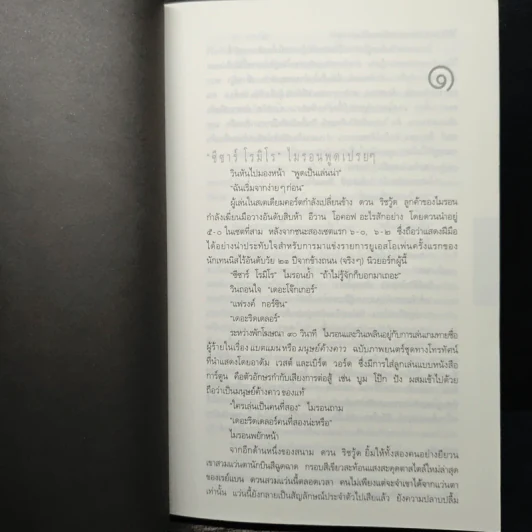 ๑
"ซีซาร์ โรมิโร" ไมรอนพูดเปรยๆ
วินหันไปมองหน้า "พูดเป็นเล่นน่า"
"ฉันเริ่มจากง่ายๆ ก่อน"
ผู้เล่นในสเตเดียมคอร์ตกำลังเปลี่ยนข้าง ดวน ริชวู้ด ลูกค้าของไมรอน
กำลังเฆี่ยนมือวางอันดับสิบห้า อีวาน โอคอฟ อะไรสักอย่าง โดยดวนนำอยู่
๕-๐ ในเซตที่สาม หลังจากชนะสองเซตแรก ๖-๐, ๖-๒ ซึ่งถือว่าแสดงฝีมือ
ได้อย่างน่าประทับใจสำหรับการมาแข่งรายการยูเอสโอเพ่นครั้งแรกของ
นักเทนนิสไร้อันดับวัย ๒๑ ปีจากข้างถนน (จริงๆ) นิวยอร์กผู้นี้
"ซีซาร์ โรมิโร" ไมรอนย้ำ "ถ้าไม่รู้จักก็บอกมาเถอะ"
วินถอนใจ "เดอะโจ๊กเกอร์"
"แฟรงค์ กอร์ชิน"
"เดอะริดเดลอร์"
ระหว่างพักโฆษณา ๙๐ วินาที ไมรอนและวินเพลินอยู่กับการเล่นเกมทายชื่อ
ผู้ร้ายในเรื่อง แบตแมน หรือ มนุษย์ค้างคาว ฉบับภาพยนตร์ชุดทางโทรทัศน์
ที่นำแสดงโดยอาดัม เวสต์ และเบิร์ต วอร์ด ซึ่งมีการใส่ลูกเล่นแบบหนังสือ
การ์ตูน คือตัวอักษรกำกับเสียงการต่อสู้ เช่น บูม โป๊ก ปัง ผสมเข้าไปด้วย
ถือว่าเป็นมนุษย์ค้างคาวของแท้
"ใครเล่นเป็นคนที่สอง" ไมรอนถาม
"เดอะริดเดลอร์คนที่สองน่ะหรือ"
ไมรอนพยักหน้า
จากอีกด้านหนึ่งของสนาม ดวน ริชวู้ด ยิ้มให้ทั้งสองคนอย่างยียวน
เขาสวมแว่นตานักบินสีฉูดฉาด กรอบสีเขียวสะท้อนแสงสะดุดตาสไตล์ใหม่ล่าสุด
ของเรย์แบน ดวนสวมแว่นนี้ตลอดเวลา คนไม่เพียงแต่จะจำเขาได้จากแว่นตา
เท่านั้น แว่นนี้ยังกลายเป็นสัญลักษณ์ประจำตัวไปเสียแล้ว ยังความปลาบปลื้ม